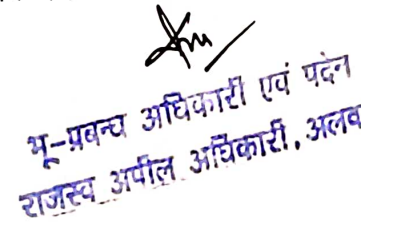 भू-प्रबन्ध अधिकारी एवं पदेन
राजस्व अपील अधिकारी, अलव